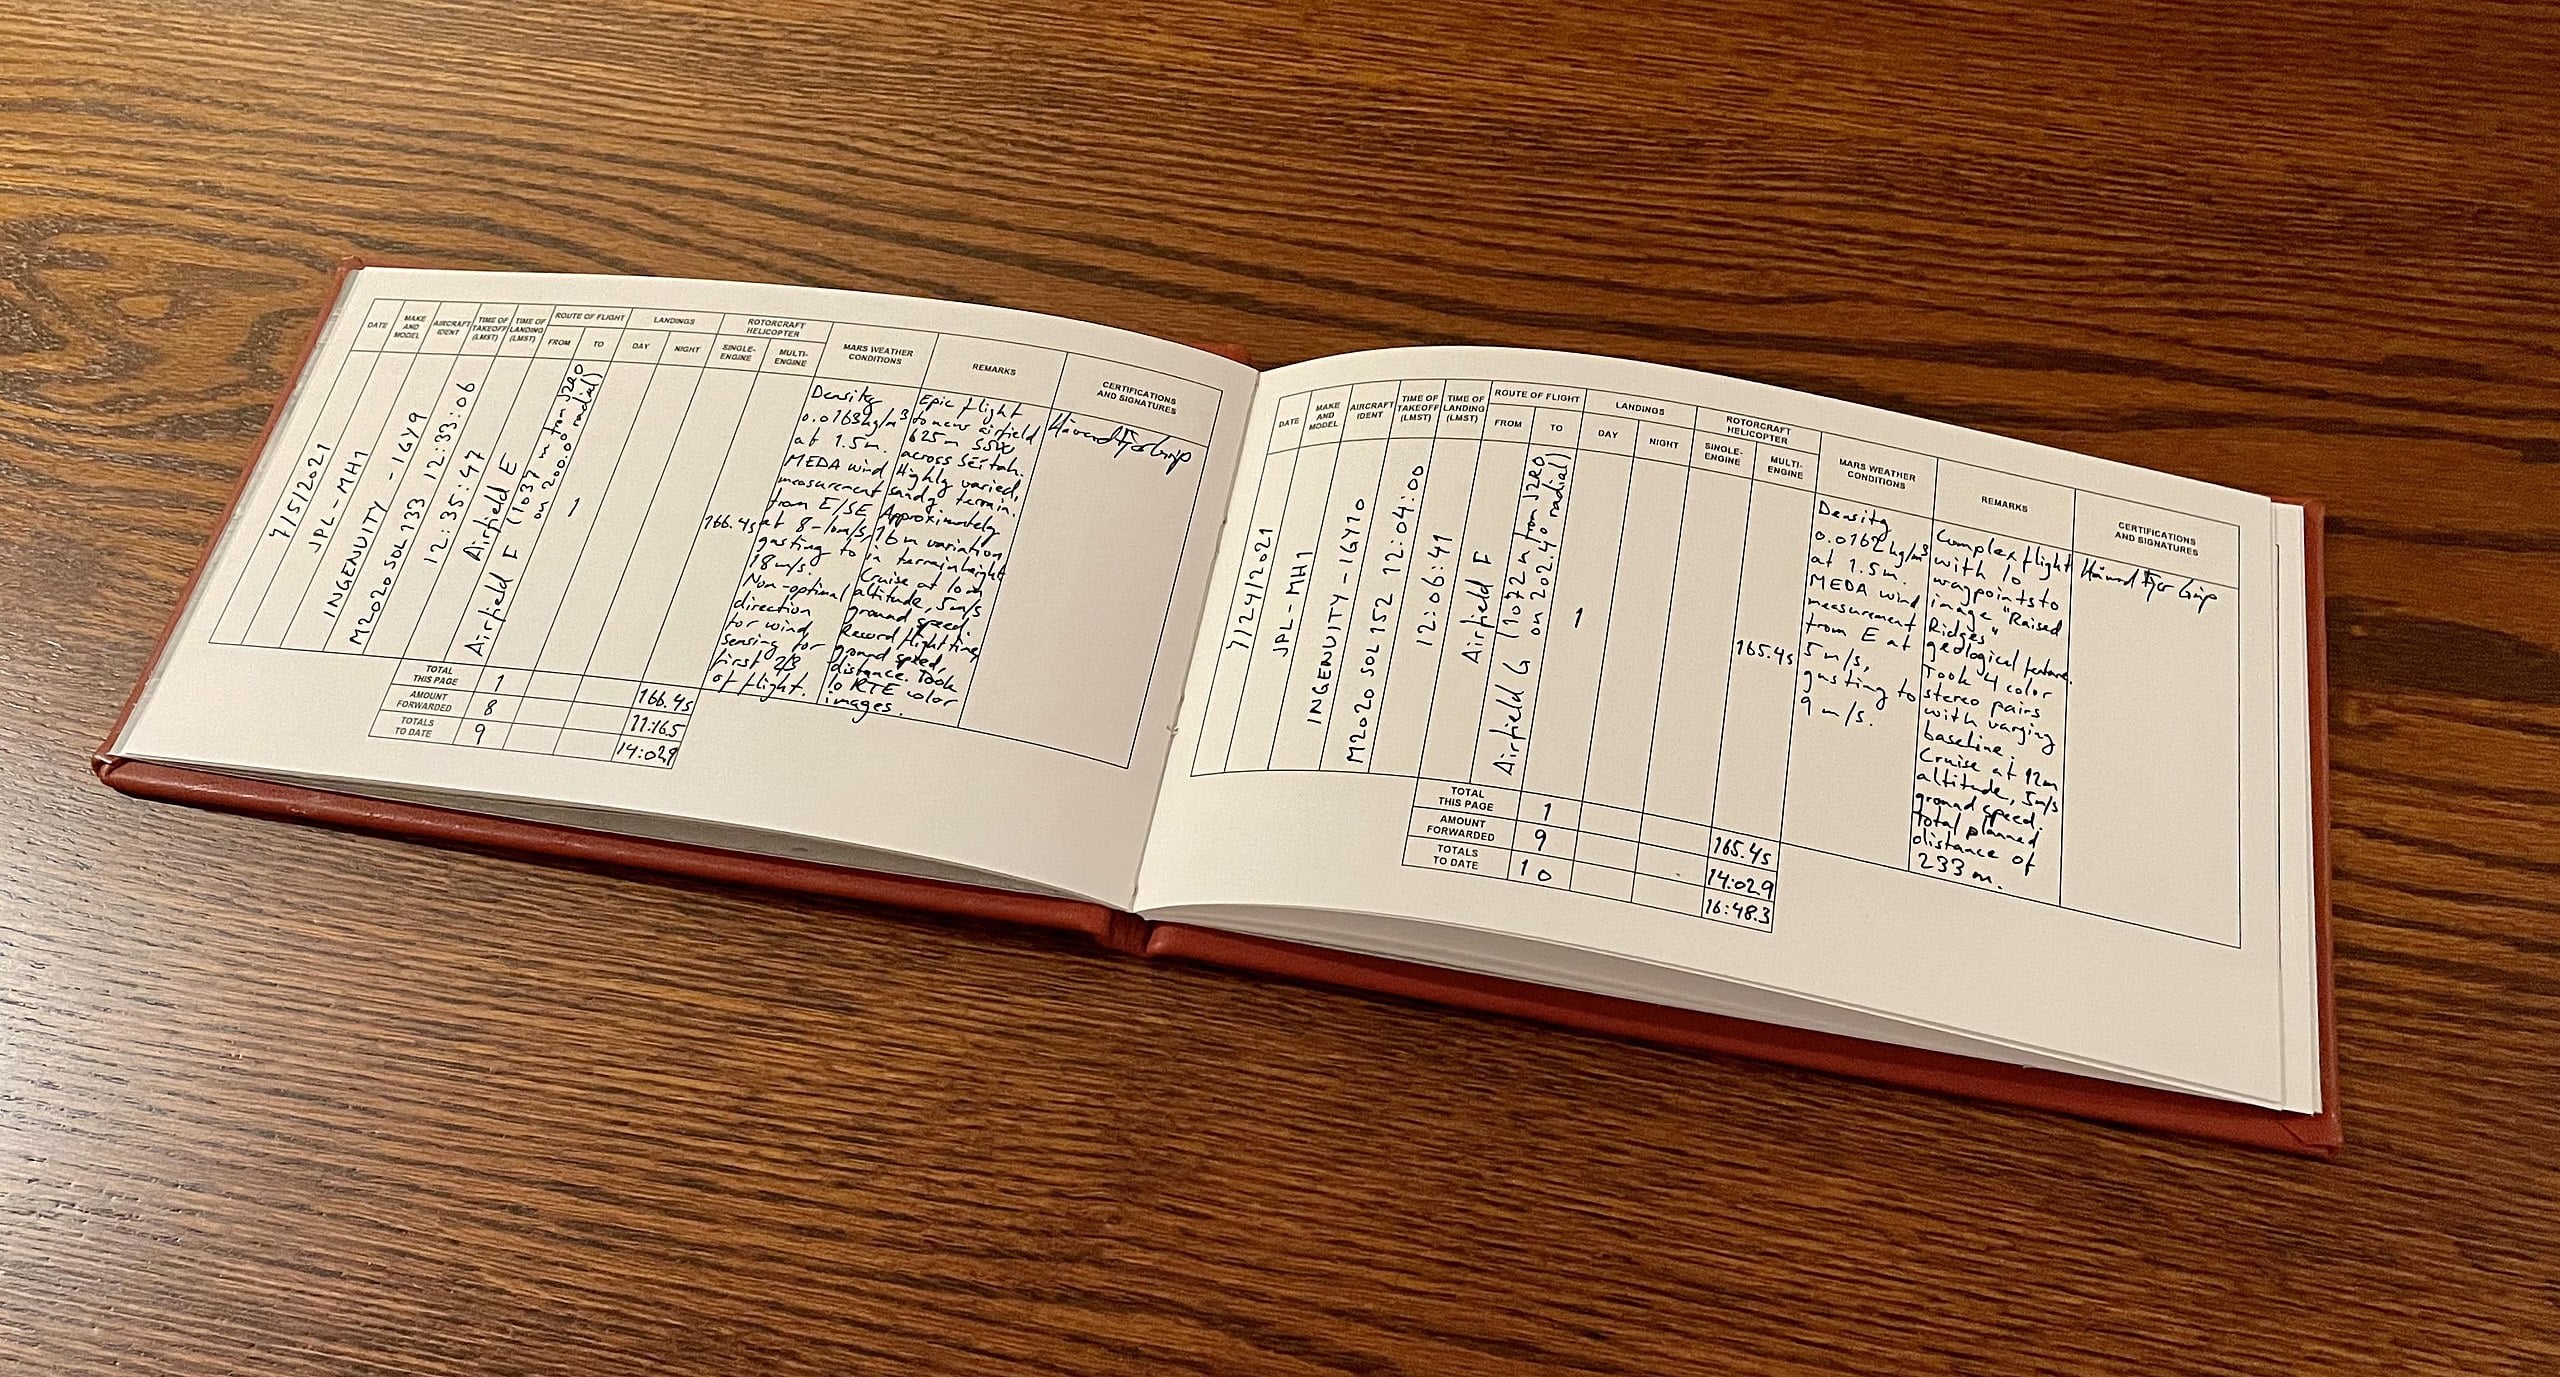 DATE
MAKE
AND
MODEL
AIRCRAFT
IDENT
TIME OF
TAKEOFF
(LMST)
TIME OF
LANDING
(LMST)
ROUTE OF FLIGHT
FROM
TO
LANDINGS
DAY
NIGHT
ROTORCRAFT
HELICOPTER
SINGLE-
ENGINE
MULTI-
ENGINE
MARS WEATHER
CONDITIONS
REMARKS
CERTIFICATIONS
AND SIGNATURES
7/5/2021
JPL-MH1
INGENUITY-IGY9
M2020 SOL 133 12:33:06
12:35:47
Airfield E
Airfield F (1037 m from JZRO
on 200.0° radial)
1
166.4s
Density
0.0163kg/m³
at 1.5m.
MEDA wind
measurement
from E/SE
at 8-10m/s,
gusting to
18m/s.
Non-optimal
direction
for wind
sensing for
first 2/3
of flight.
Epic flight
to new airfield
625m SSW
across Séítah.
Highly varied,
sandy terrain.
Approximately
16m variation
in terrain height
Cruise at 10m
altitude, 5m/s
ground speed.
Record flight time,
ground speed,
distance. Took
10 RTE color
images.
Håvard Fjær Grip
TOTAL
THIS PAGE
1
166.4s
AMOUNT
FORWARDED
8
11:16.5
TOTALS
TO DATE
9
14:02.9
DATE
MAKE
AND
MODEL
AIRCRAFT
IDENT
TIME OF
TAKEOFF
(LMST)
TIME OF
LANDING
(LMST)
ROUTE OF FLIGHT
FROM
TO
LANDINGS
DAY
NIGHT
ROTORCRAFT
HELICOPTER
SINGLE-
ENGINE
MULTI-
ENGINE
MARS WEATHER
CONDITIONS
REMARKS
CERTIFICATIONS
AND SIGNATURES
7/24/2021
JPL-MH1
INGENUITY-IGY10
M2020 SOL 152 12:04:00
12:06:41
Airfield F
Airfield G (1072 m from JZRO
on 202.4° radial)
1
165.4s
Density
0.0162kg/m³
at 1.5m.
MEDA wind
measurement
from E at
5m/s,
gusting to
9m/s.
Complex flight
with 10
waypoints to
image "Raised
Ridges"
geological feature.
Took 4 color
stereo pairs
with varying
baseline.
Cruise at 12m
altitude, 5m/s
ground speed.
Total planned
distance of
233m.
Håvard Fjær Grip
TOTAL
THIS PAGE
1
165.4s
AMOUNT
FORWARDED
9
14:02.9
TOTALS
TO DATE
10
16:48.3